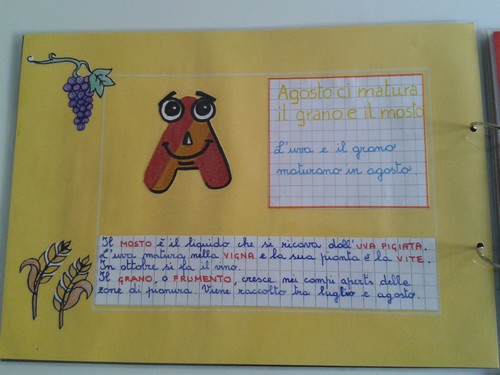 A
Agosto ci matura
il grano e il mosto
L'uva e il grano
maturano in agosto.
Il MOSTO è il liquido che si ricava dall'UVA PIGIATA.
L'uva matura nella VIGNA e la sua pianta è la VITE.
In ottobre si fa il vino.
Il GRANO, O FRUMENTO, cresce nei campi aperti delle
zone di pianura. Viene raccolto tra luglio e agosto.